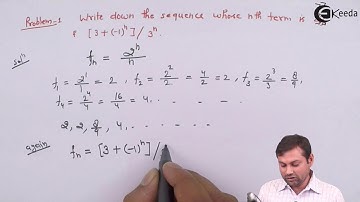 Ekeeda
Problem-1 Write down the sequence whose nth term is
[3 + (-1)ⁿ] / 3ⁿ.
Solⁿ fₙ = 2ⁿ/n
f₁ = 2¹/1 = 2, f₂ = 2²/2 = 4/2 = 2, f₃ = 2³/3 = 8/3,
f₄ = 2⁴/4 = 16/4 = 4, . . . . .
2, 2, 8/3, 4, . . . . . .
again fₙ = [3 + (-1)ⁿ] /